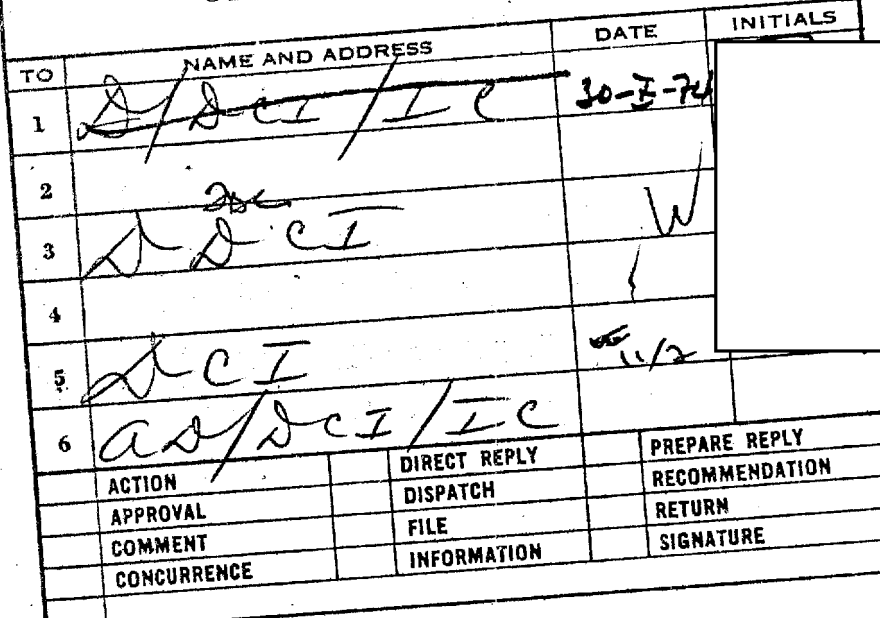 TO NAME AND ADDRESS DATE INITIALS
1 D/DCI/IC 30-I-74
2
3 DDCI W
4
5 DCI 11/2
6 AD/DCI/IC
ACTION DIRECT REPLY PREPARE REPLY
APPROVAL DISPATCH RECOMMENDATION
COMMENT FILE RETURN
CONCURRENCE INFORMATION SIGNATURE